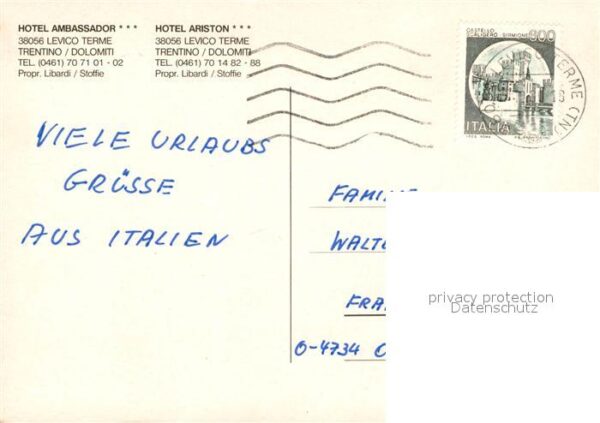 HOTEL AMBASSADOR ***
38056 LEVICO TERME
TRENTINO / DOLOMITI
TEL. (0461) 70 71 01 - 02
Propr. Libardi / Stoffie
HOTEL ARISTON ***
38056 LEVICO TERME
TRENTINO / DOLOMITI
TEL. (0461) 70 14 82 - 88
Propr. Libardi / Stoffie
CASTELLO
SCALIGERO SIRMIONE
300
ITALIA
TERME (TN)
VIELE URLAUBS
GRÜSSE
AUS ITALIEN
FAMI
WALT
FRA
O-4734
privacy protection
Datenschutz